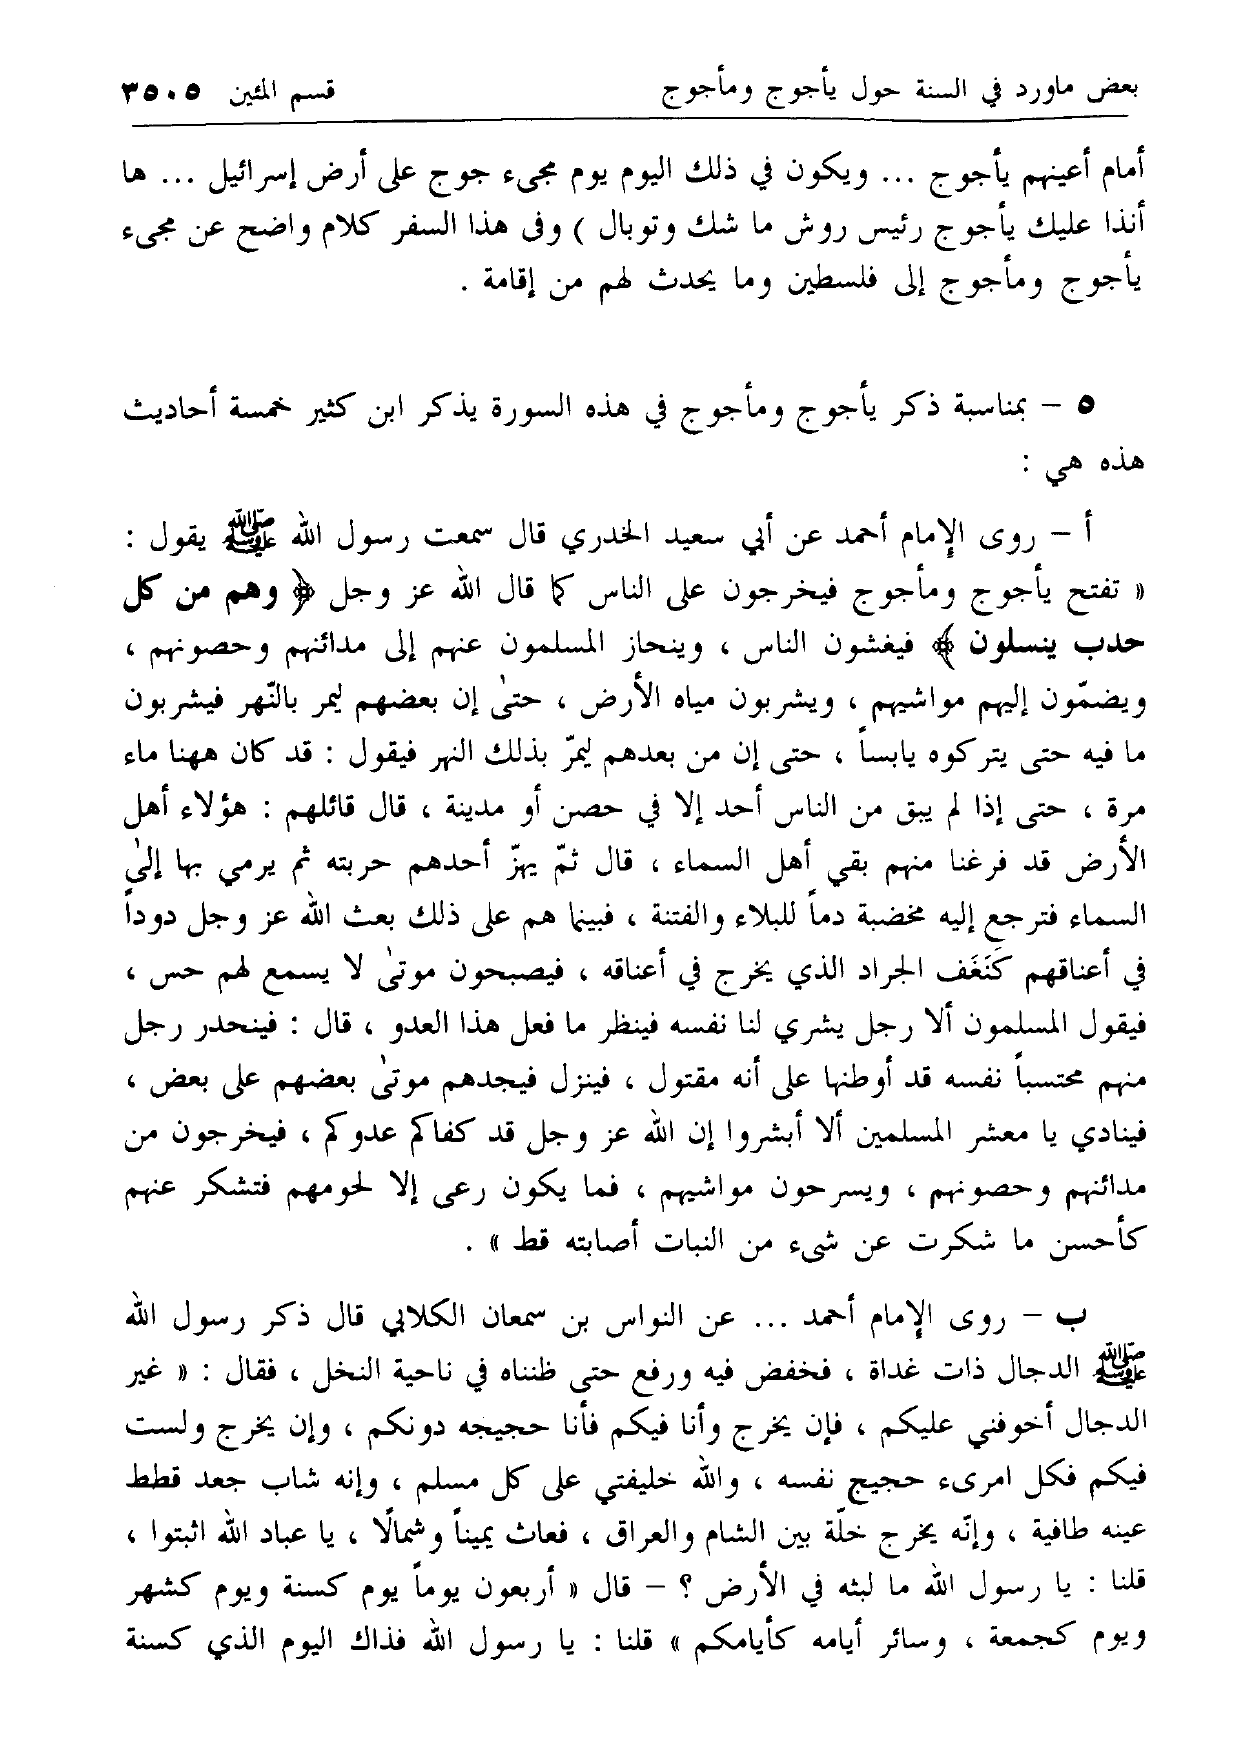 بعض ماورد في السنة حول يأجوج ومأجوج قسم المئين ٣٥٠٥
أمام أعينهم يأجوج ... ويكون في ذلك اليوم يوم مجىء جوج على أرض إسرائيل ... ها
أنذا عليك يأجوج رئيس روش ما شك وتوبال ) وفى هذا السفر كلام واضح عن مجىء
يأجوج ومأجوج إلى فلسطين وما يحدث لهم من إقامة .
٥ – بمناسبة ذكر يأجوج ومأجوج في هذه السورة يذكر ابن كثير خمسة أحاديث
هذه هي :
أ – روى الإمام أحمد عن أبي سعيد الخدري قال سمعت رسول الله ﷺ يقول :
« تفتح يأجوج ومأجوج فيخرجون على الناس كما قال الله عز وجل ﴿ وهم من كل
حدب ينسلون ﴾ فيغشون الناس ، وينحاز المسلمون عنهم إلى مدائنهم وحصونهم ،
ويضمّون إليهم مواشيهم ، ويشربون مياه الأرض ، حتىٰ إن بعضهم ليمر بالنّهر فيشربون
ما فيه حتى يتركوه يابساً ، حتى إن من بعدهم ليمرّ بذلك النهر فيقول : قد كان ههنا ماء
مرة ، حتى إذا لم يبق من الناس أحد إلا في حصن أو مدينة ، قال قائلهم : هؤلاء أهل
الأرض قد فرغنا منهم بقي أهل السماء ، قال ثمّ يهزّ أحدهم حربته ثم يرمي بها إلىٰ
السماء فترجع إليه مخضبة دماً للبلاء والفتنة ، فبينما هم على ذلك بعث الله عز وجل دوداً
في أعناقهم كَنَغَف الجراد الذي يخرج في أعناقه ، فيصبحون موتىٰ لا يسمع لهم حس ،
فيقول المسلمون ألا رجل يشري لنا نفسه فينظر ما فعل هذا العدو ، قال : فينحدر رجل
منهم محتسباً نفسه قد أوطنها على أنه مقتول ، فينزل فيجدهم موتىٰ بعضهم على بعض ،
فينادي يا معشر المسلمين ألا أبشروا إن الله عز وجل قد كفاكم عدوكم ، فيخرجون من
مدائنهم وحصونهم ، ويسرحون مواشيهم ، فما يكون رعى إلا لحومهم فتشكر عنهم
كأحسن ما شكرت عن شىء من النبات أصابته قط » .
ب – روى الإمام أحمد ... عن النواس بن سمعان الكلابي قال ذكر رسول الله
ﷺ الدجال ذات غداة ، فخفض فيه ورفع حتى ظنناه في ناحية النخل ، فقال : « غير
الدجال أخوفني عليكم ، فإن يخرج وأنا فيكم فأنا حجيجه دونكم ، وإن يخرج ولست
فيكم فكل امرىء حجيج نفسه ، والله خليفتي على كل مسلم ، وإنه شاب جعد قطط
عينه طافية ، وإنّه يخرج خلّة بين الشام والعراق ، فعاث يميناً وشمالًا ، يا عباد الله اثبتوا ،
قلنا : يا رسول الله ما لبثه في الأرض ؟ – قال « أربعون يوماً يوم كسنة ويوم كشهر
ويوم كجمعة ، وسائر أيامه كأيامكم » قلنا : يا رسول الله فذاك اليوم الذي كسنة